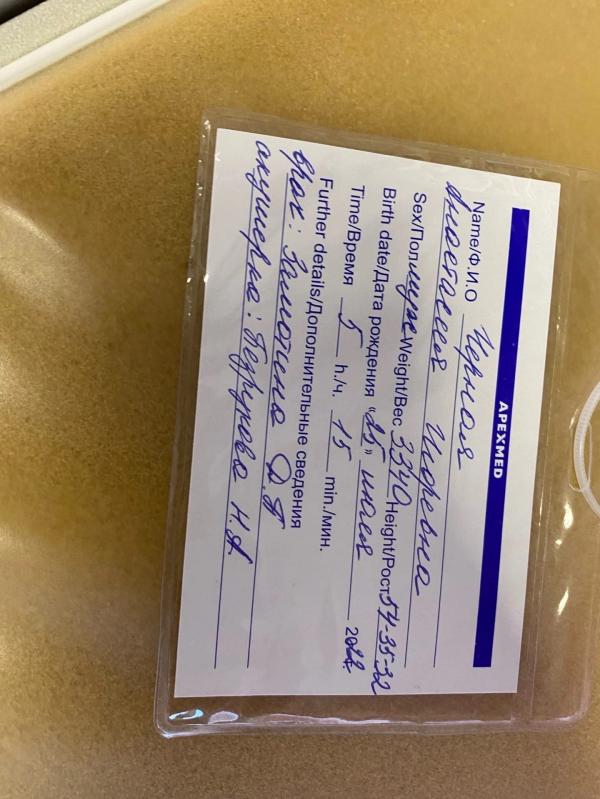 APEXMED
Name/Ф.И.О Черная
Анастасия Игоревна
Sex/Пол муж Weight/Вес 3340 Height/Рост 54-35-32
Birth date/Дата рождения "25" июля 2022
Time/Время 5 h./ч. 15 min./мин.
Further details/Дополнительные сведения
врач: Замотина Д.П
акушерка: Педрунова Н.А